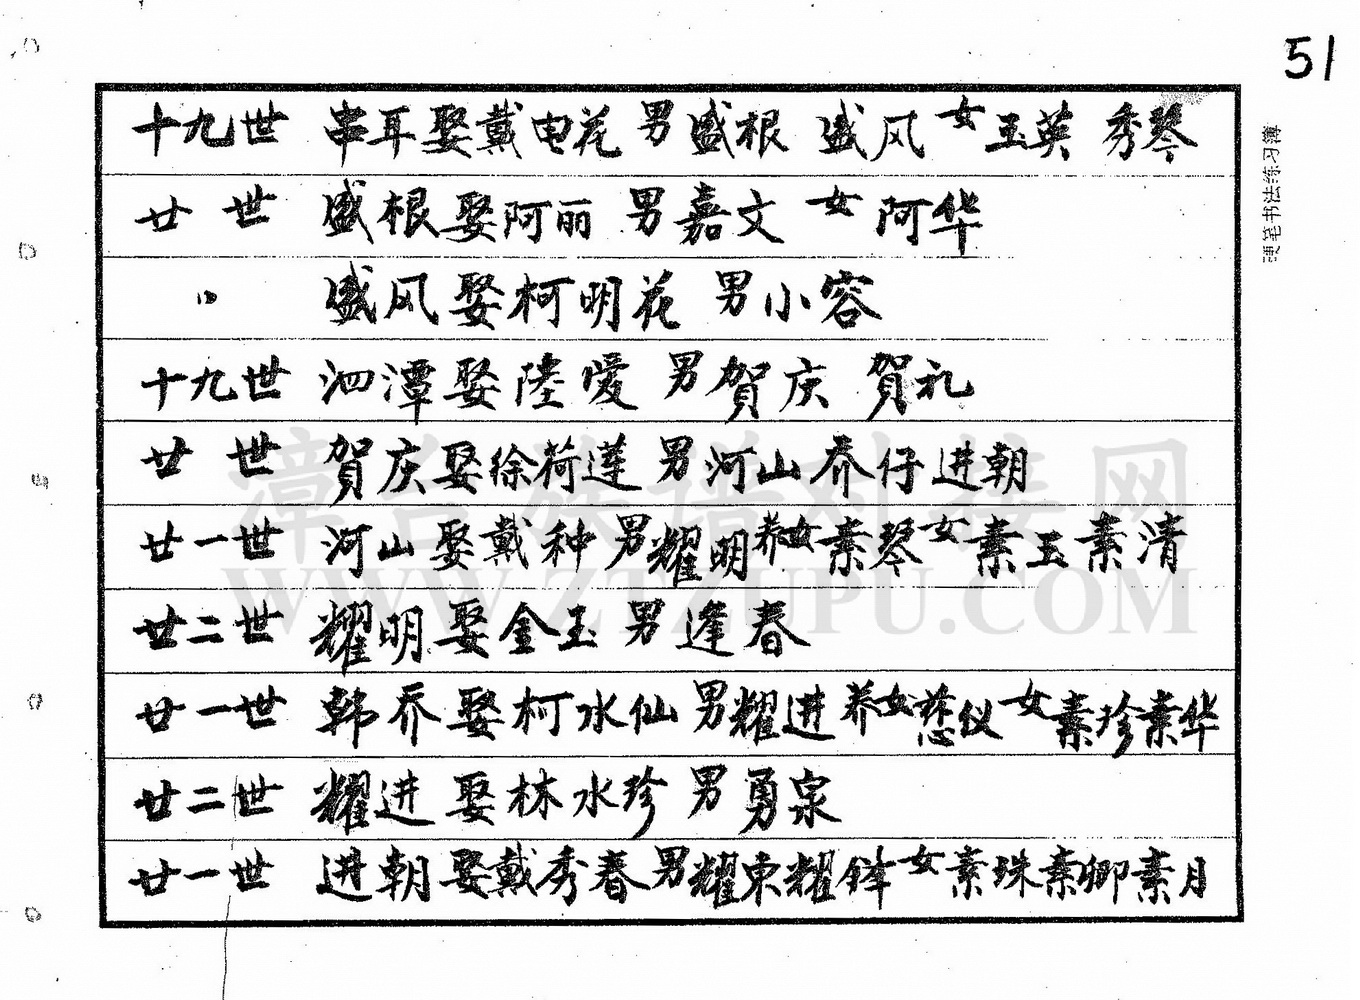 51
十九世 串耳娶戴电花 男盛根 盛风 女玉英 秀琴
廿 世 盛根娶阿丽 男嘉文 女阿华
〃 盛风娶柯明花 男小容
十九世 泗潭娶陸嗳 男賀庆 賀礼
廿 世 賀庆娶徐荷莲 男河山乔仔进朝
廿一世 河山娶戴种 男耀明养女素琴女素玉素清
廿二世 耀明娶金玉 男逢春
廿一世 韩乔娶柯水仙 男耀进养女慈仪女素珍素华
廿二世 耀进娶林水珍 男勇泉
廿一世 进朝娶戴秀春男耀東耀鋒女素珠素卿素月
硬笔书法练习簿
漳台族谱对接网
WWW.ZTZUPU.COM